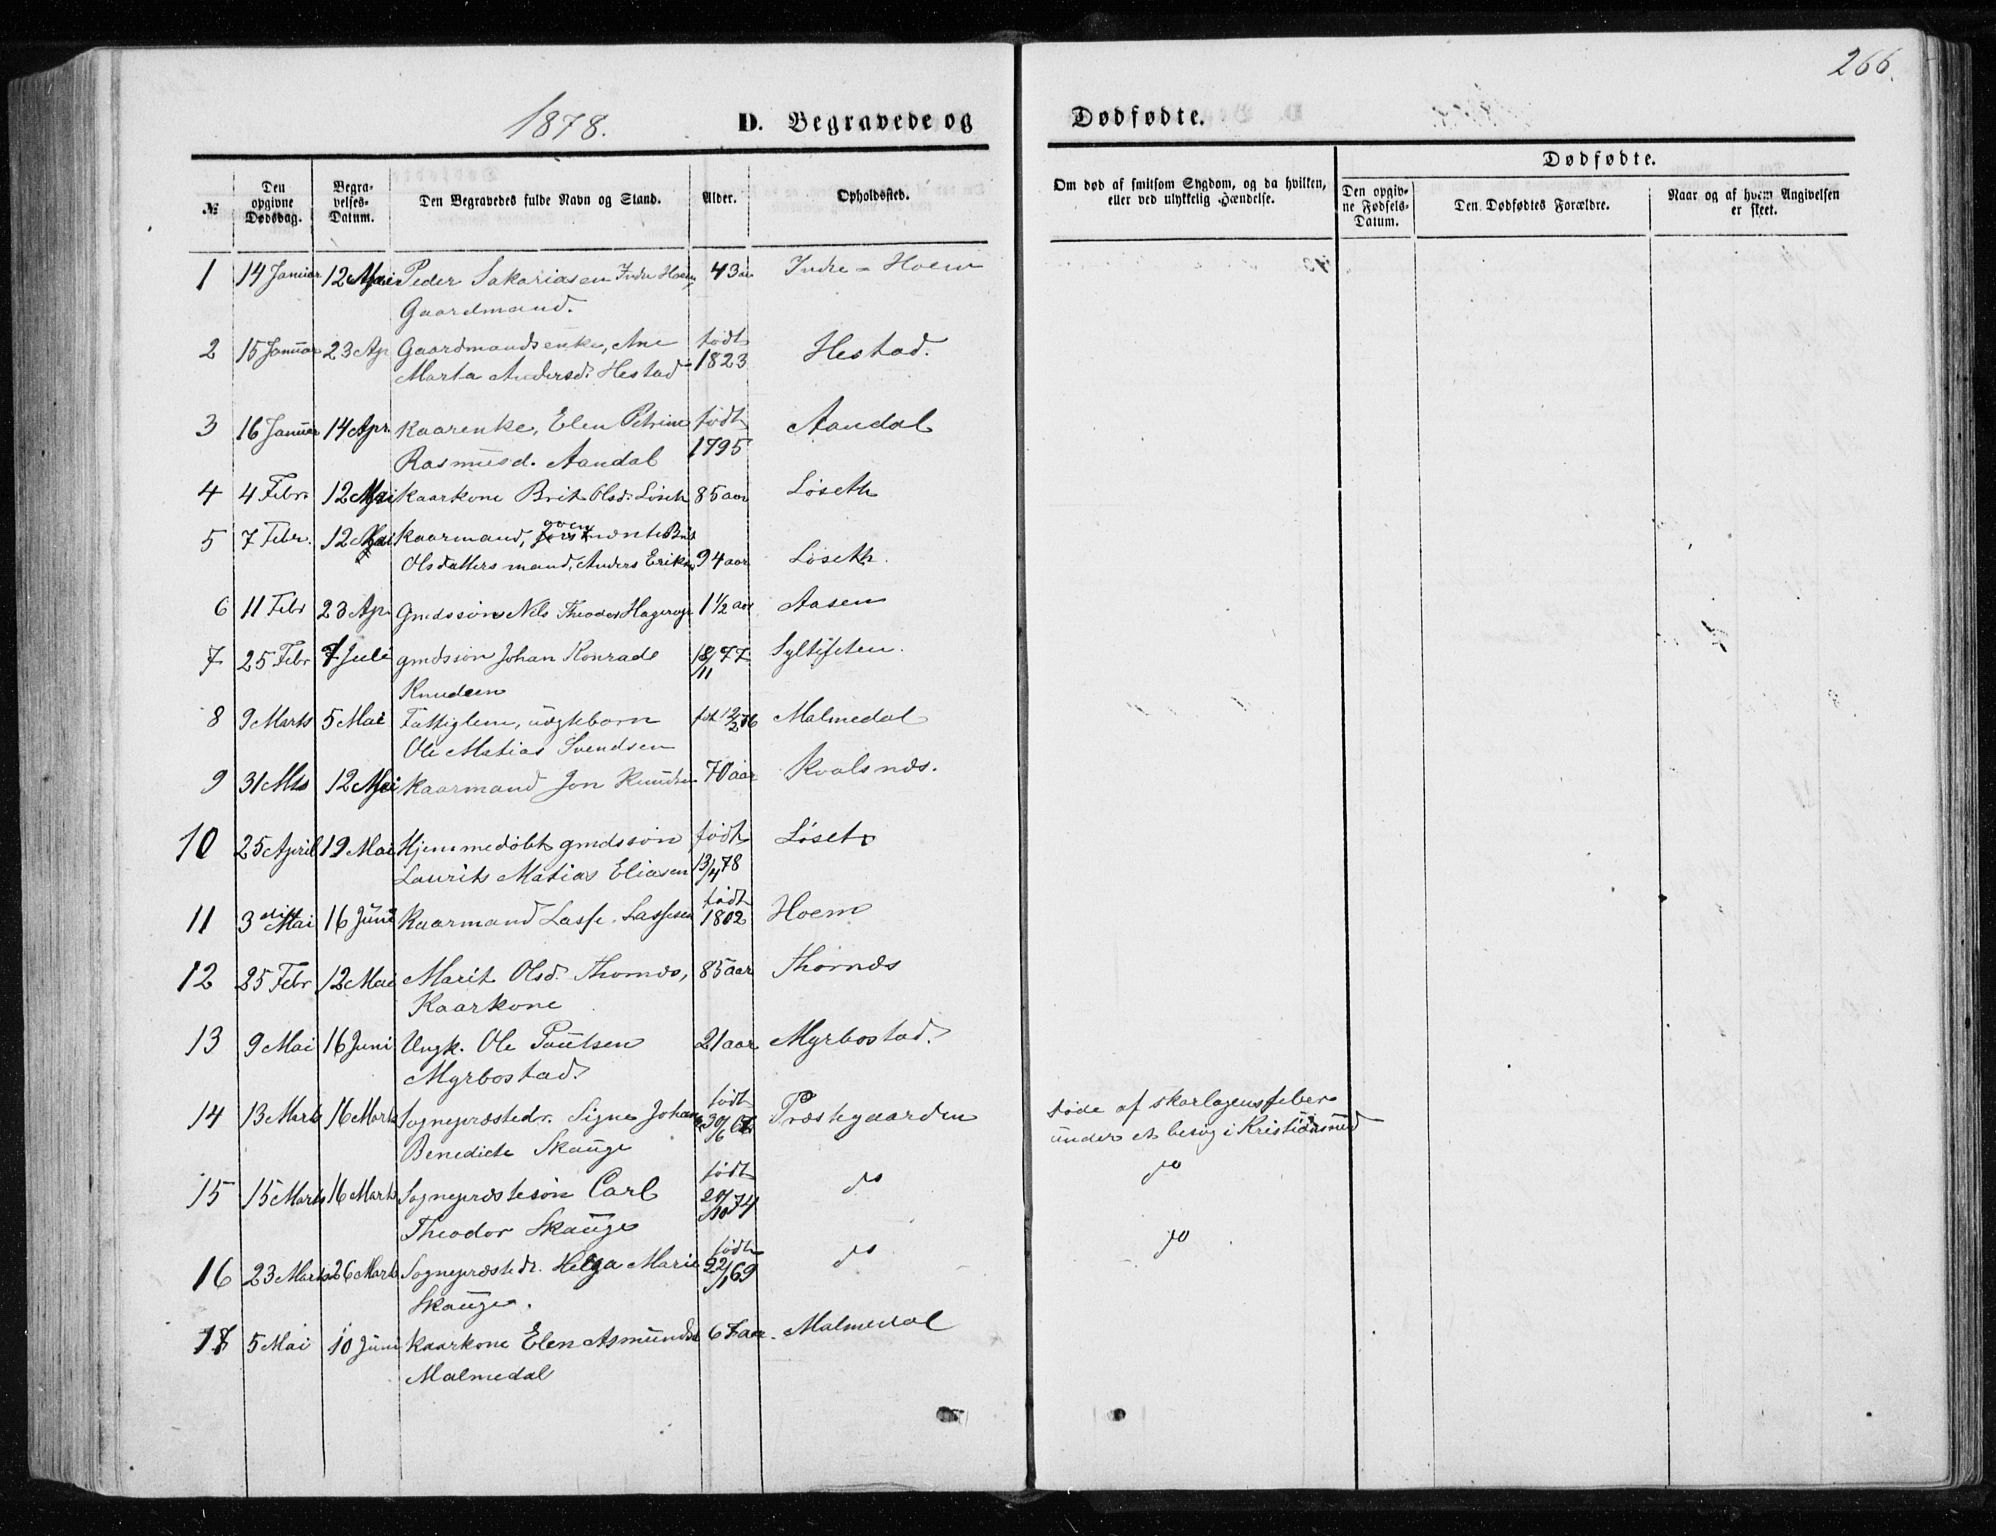 266.
1878. D. Begravede og Dødfødte.
№ Den opgivne Dødsdag. Begravelses-Datum. Den Begravedes fulde Navn og Stand. Alder. Opholdssted. Om død af smitsom Sygdom, og da hvilken, eller ved ulykkelig Hændelse. Dødfødte.
Den opgivne Fødsels-Datum. Den Dødfødtes Forældre. Naar og af hvem Angivelsen er skeet.
1 14 Januar 12 Mai Peder Sakariasen Indre Hoem, 43 aar Indre-Hoem
Gaardmand.
2 15 Januar 23 Ap Gaardmandsenke, Ane født Hestad.
Marta Andersd. Hestad 1823
3 16 Januar 14 Apr. Kaarenke, Elen Petrine født Aandal
Rasmusd. Aandal 1795
4 4 Febr 12 Mai Kaarkone Brit Olsd. Løseth 85 aar Løseth
5 7 Febr. 12 Mai Kaarmand, oven nævnte Brit
Olsdatters mand, Anders Eriksen 94 aar Løseth.
6 11 Febr 23 Ap Gmdssøn Nils Theodor 1 1/2 aar Aasen
7 25 Febr 7 Juli gmdssøn Johan Konrade 18/11 77
Knudsen
8 9 Marts 5 Mai Fattiglem, uægteborn 12/2 76 Malmedal
Ole Matias Svendsen
9 31 Mts 12 Mai Kaarmand Jon Knudsen 70 aar Kvalsnæs.
10 25 April 19 Mai Hjemmedøbt gmdssøn født Løset
Laurits Matias Eliasen 13/4 78
11 3die Mai 16 Juni Kaarmand Lasse Lassesen født 1802 Hoem
12 25 Febr 12 Mai Marit Olsd. Thornæs, 85 aar Thornæs
Kaarkone
13 9 Mai 16 Juni Ungk. Ole Poulsen 21 aar Myrbostad.
Myrbostad.
14 13 Marts 16 Marts Sognepræstedr. Signe Johanne født 30/6 Præstegaarden døde af skarlagensfeber
Benedicte Skauge under et besøg i Kristiansund
15 15 Marts 16 Marts Sognepræstesøn Carl født do do
Theodor Skauge 20/10 74
16 23 Marts 26 Marts Sognepræstedr. Helga Marie født 22/1 69 do do
Skauge.
17 5 Mai 10 Juni Kaarkone Elen Asmundsd 67 aar. Malmedal
Malmedal